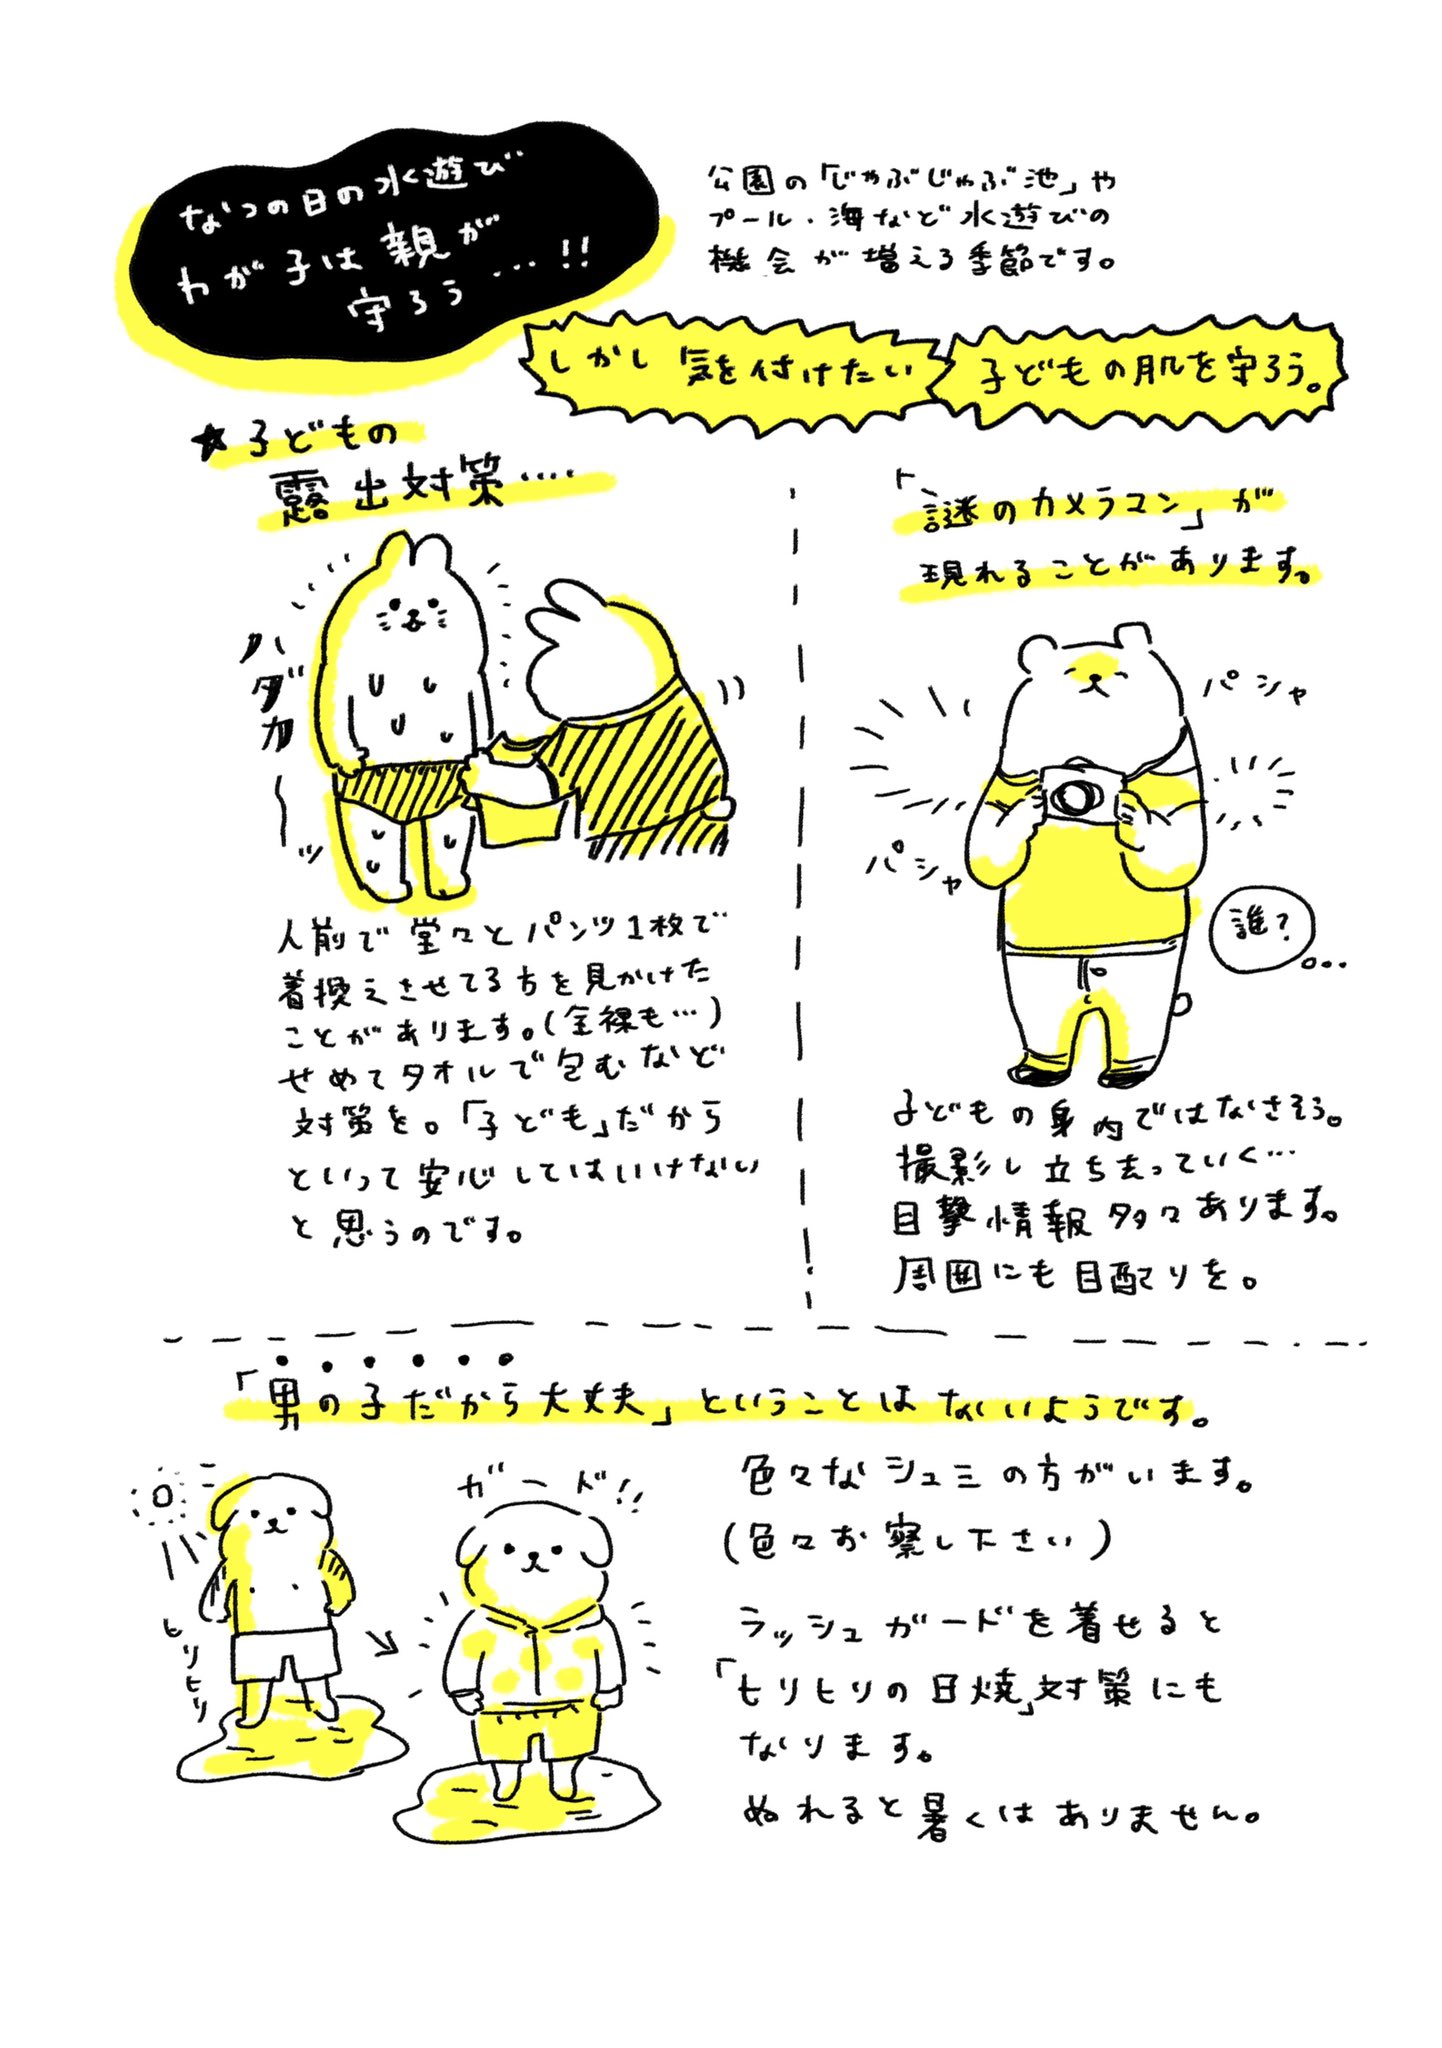 なつの日の水遊び
わが子は親が
守ろう…!!
公園の「じゃぶじゃぶ池」や
プール・海など水遊びの
機会が増える季節です。
しかし気を付けたい
子どもの肌を守ろう。
★子どもの
露出対策‥‥
ハダカ〜ッ
人前で堂々とパンツ1枚で
着換えさせてる方を見かけた
ことがあります。(全裸も…)
せめてタオルで包むなど
対策を。「子ども」だから
といって安心してはいけない
と思うのです。
「謎のカメラマン」が
現れることがあります。
パシャ
パシャ
誰?
子どもの身内ではなさそう。
撮影し立ち去っていく…
目撃情報多々あります。
周囲にも目配りを。
「男の子だから大丈夫」ということはないようです。
ヒリヒリ
ガード!!
色々なシュミの方がいます。
(色々お察し下さい)
ラッシュガードを着せると
「ヒリヒリの日焼」対策にも
なります。
ぬれると暑くはありません。